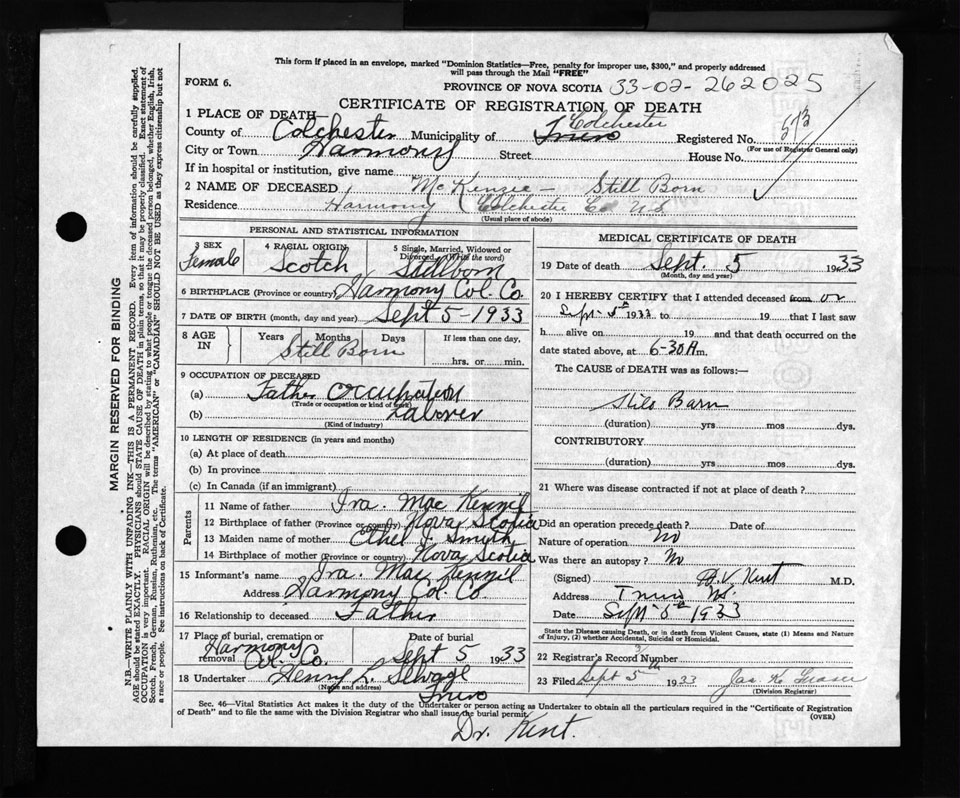 This form if placed in an envelope, marked "Dominion Statistics—Free, penalty for improper use, $300," and properly addressed
will pass through the Mail "FREE"
FORM 6.
PROVINCE OF NOVA SCOTIA 33-02-262025
CERTIFICATE OF REGISTRATION OF DEATH
1 PLACE OF DEATH—
County of Colchester Municipality of Truro Colchester Registered No. 573
(For use of Registrar General only)
City or Town Harmony Street House No.
If in hospital or institution, give name
2 NAME OF DECEASED McKenzie — Still Born
Residence Harmony Colchester Co N.S.
(Usual place of abode)
PERSONAL AND STATISTICAL INFORMATION
3 SEX Female
4 RACIAL ORIGIN Scotch
5 Single, Married, Widowed or Divorced (Write the word) Stillborn
6 BIRTHPLACE (Province or country) Harmony Col. Co.
7 DATE OF BIRTH (month, day and year) Sept 5-1933
8 AGE IN Years Months Days Still Born
If less than one day, hrs. or min.
9 OCCUPATION OF DECEASED
(a) Father Occupation
(Trade or occupation or kind of work)
(b) Laborer
(Kind of industry)
10 LENGTH OF RESIDENCE (in years and months)
(a) At place of death
(b) In province
(c) In Canada (if an immigrant)
Parents
11 Name of father Ira. Mac Kenzil
12 Birthplace of father (Province or country) Nova Scotia
13 Maiden name of mother Ethel J. Smyth
14 Birthplace of mother (Province or country) Nova Scotia
15 Informant's name Ira. Mac Kenzil
Address Harmony Col. Co
16 Relationship to deceased Father
17 Place of burial, cremation or removal Harmony Col. Co.
Date of burial Sept 5 1933
18 Undertaker Henry L. Selvage
(Name and address)
Truro
MEDICAL CERTIFICATE OF DEATH
19 Date of death Sept. 5 1933
(Month, day and year)
20 I HEREBY CERTIFY that I attended deceased from or
Sept 5th 1933 to 19 that I last saw
h alive on 19 and that death occurred on the
date stated above, at 6-30 A m.
The CAUSE of DEATH was as follows:—
Still Born
(duration) yrs mos dys.
CONTRIBUTORY
(duration) yrs mos dys.
21 Where was disease contracted if not at place of death?
Did an operation precede death? Date of
Nature of operation No
Was there an autopsy? No
(Signed) H.V. Kent M.D.
Address Truro NS.
Date Sept 5th 1933
State the Disease causing Death, or in death from Violent Causes, state (1) Means and Nature
of Injury, (2) whether Accidental, Suicidal or Homicidal.
22 Registrar's Record Number
23 Filed Sept 5th 1933 Jas K Fraser
(Division Registrar)
Sec. 46—Vital Statistics Act makes it the duty of the Undertaker or person acting as Undertaker to obtain all the particulars required in the "Certificate of Registration
of Death" and to file the same with the Division Registrar who shall issue the burial permit.
(OVER)
Dr. Kent.
MARGIN RESERVED FOR BINDING
N.B.—WRITE PLAINLY WITH UNFADING INK—THIS IS A PERMANENT RECORD. Every item of information should be carefully supplied.
AGE should be stated EXACTLY. PHYSICIANS should STATE CAUSE OF DEATH in plain terms, so that it may be properly classified. Exact statement of
OCCUPATION is very important. RACIAL ORIGIN will be described by stating to what people or tongue the deceased person belonged, whether English, Irish,
Scotch, French, German, Russian, Ruthenian, etc. The terms "AMERICAN" or "CANADIAN" SHOULD NOT BE USED as they express citizenship but not
a race or people. See instructions on back of Certificate.